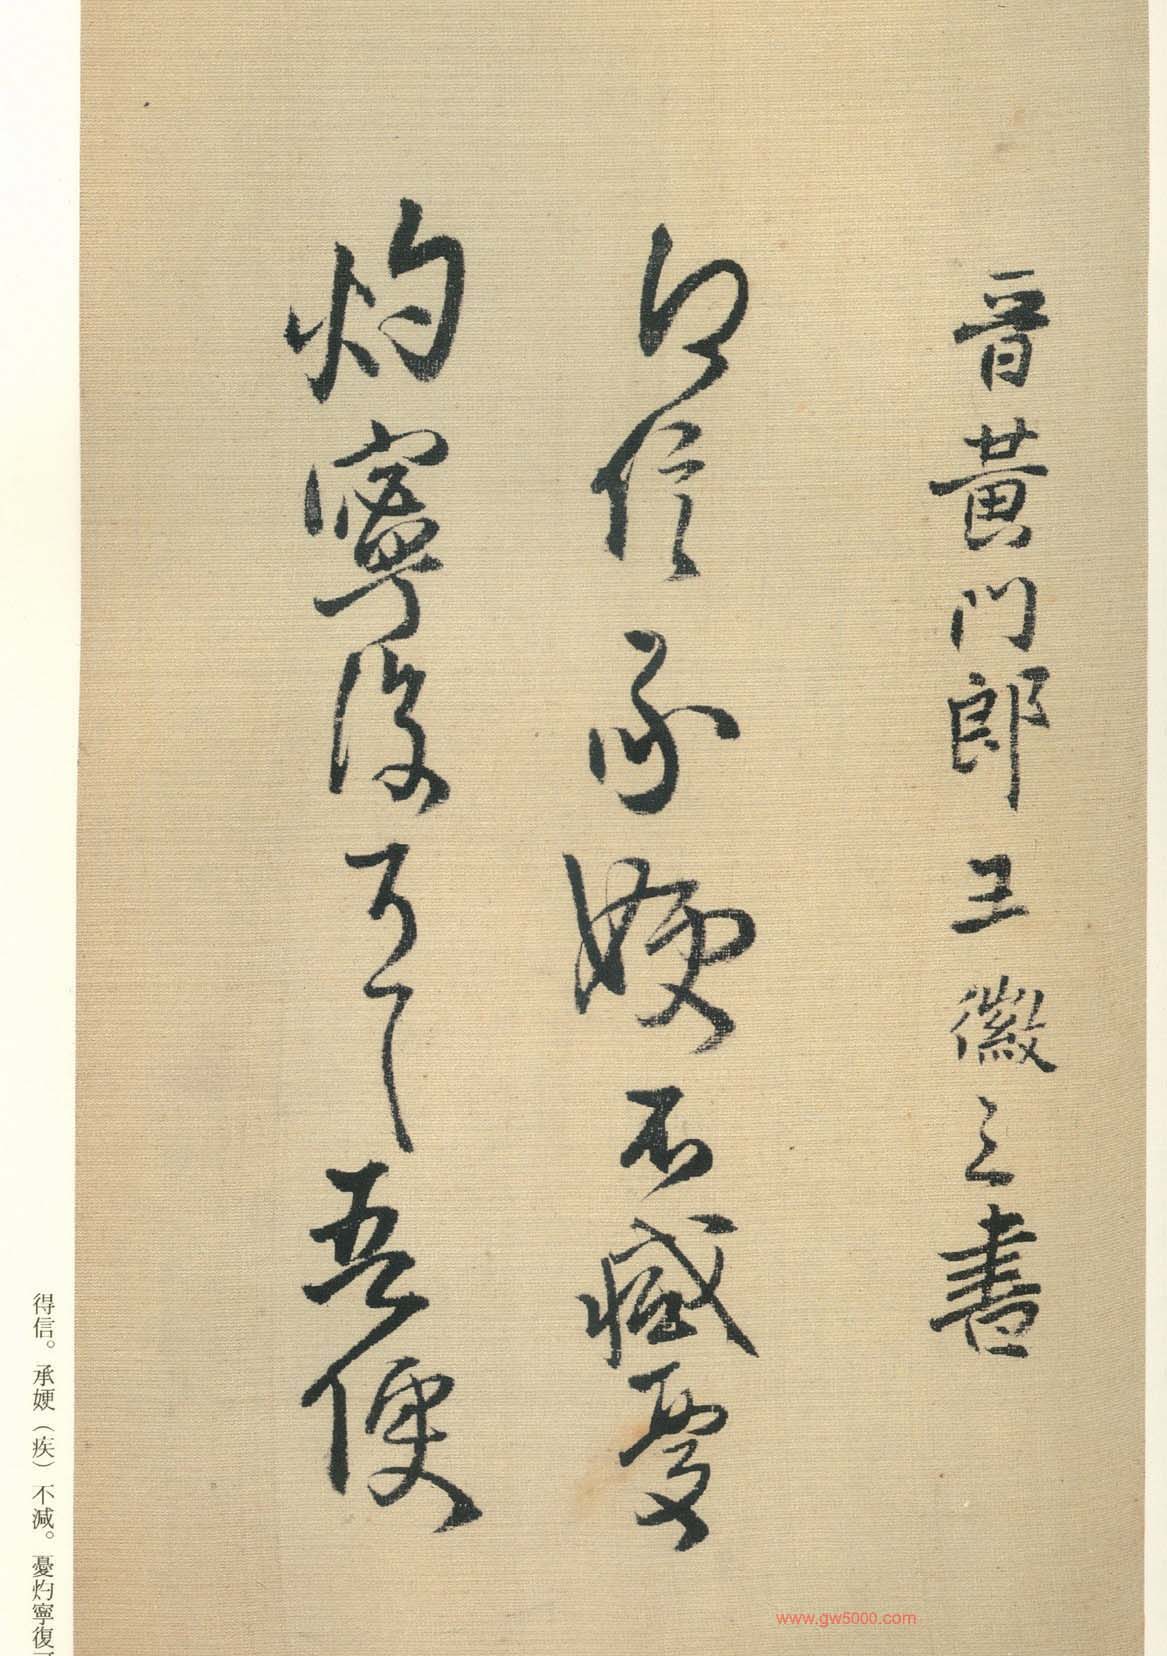 晋黄門郎王徽之書
得信承嫂不減憂
灼寧復可言吾便
得信。承嫂（疾）不減。憂灼寧復
www.gw5000.com